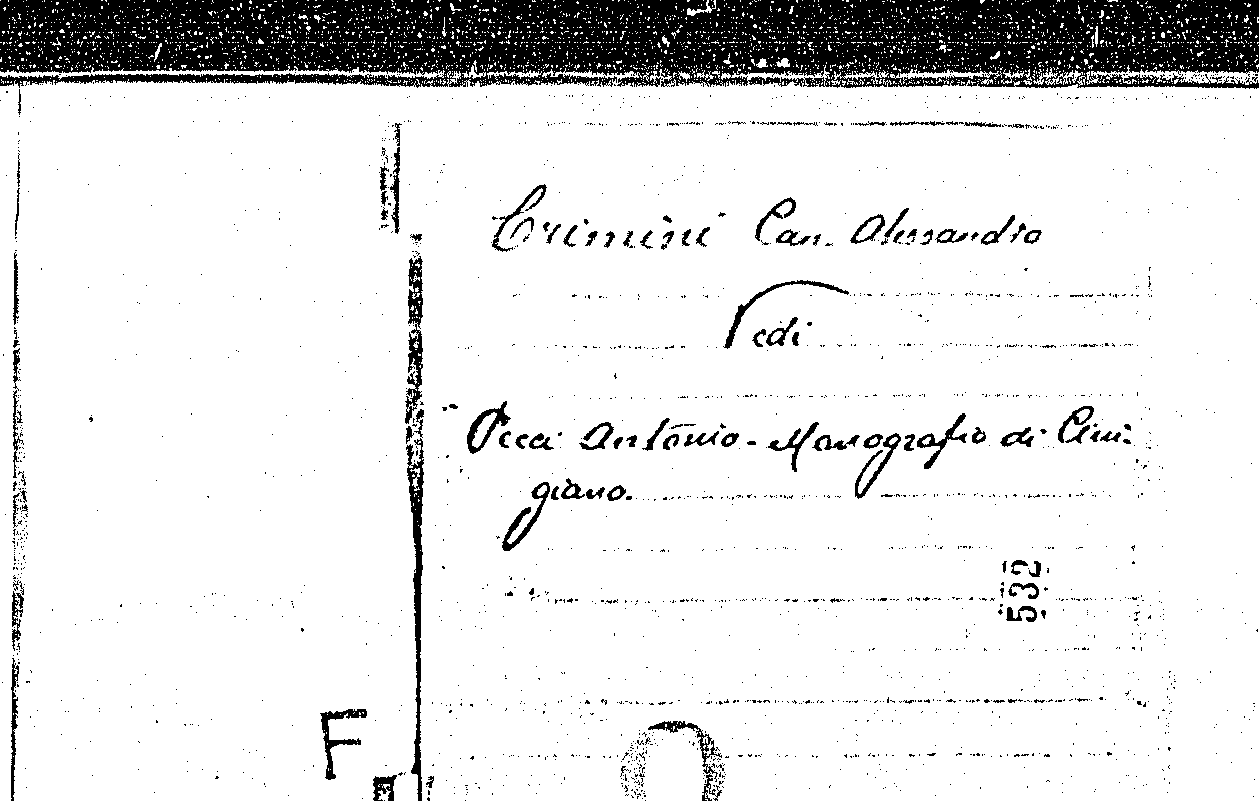 Crimini Can. Alessandro
Vedi
Picca Antonio - Monografia di Cimi-
giano.
532
F